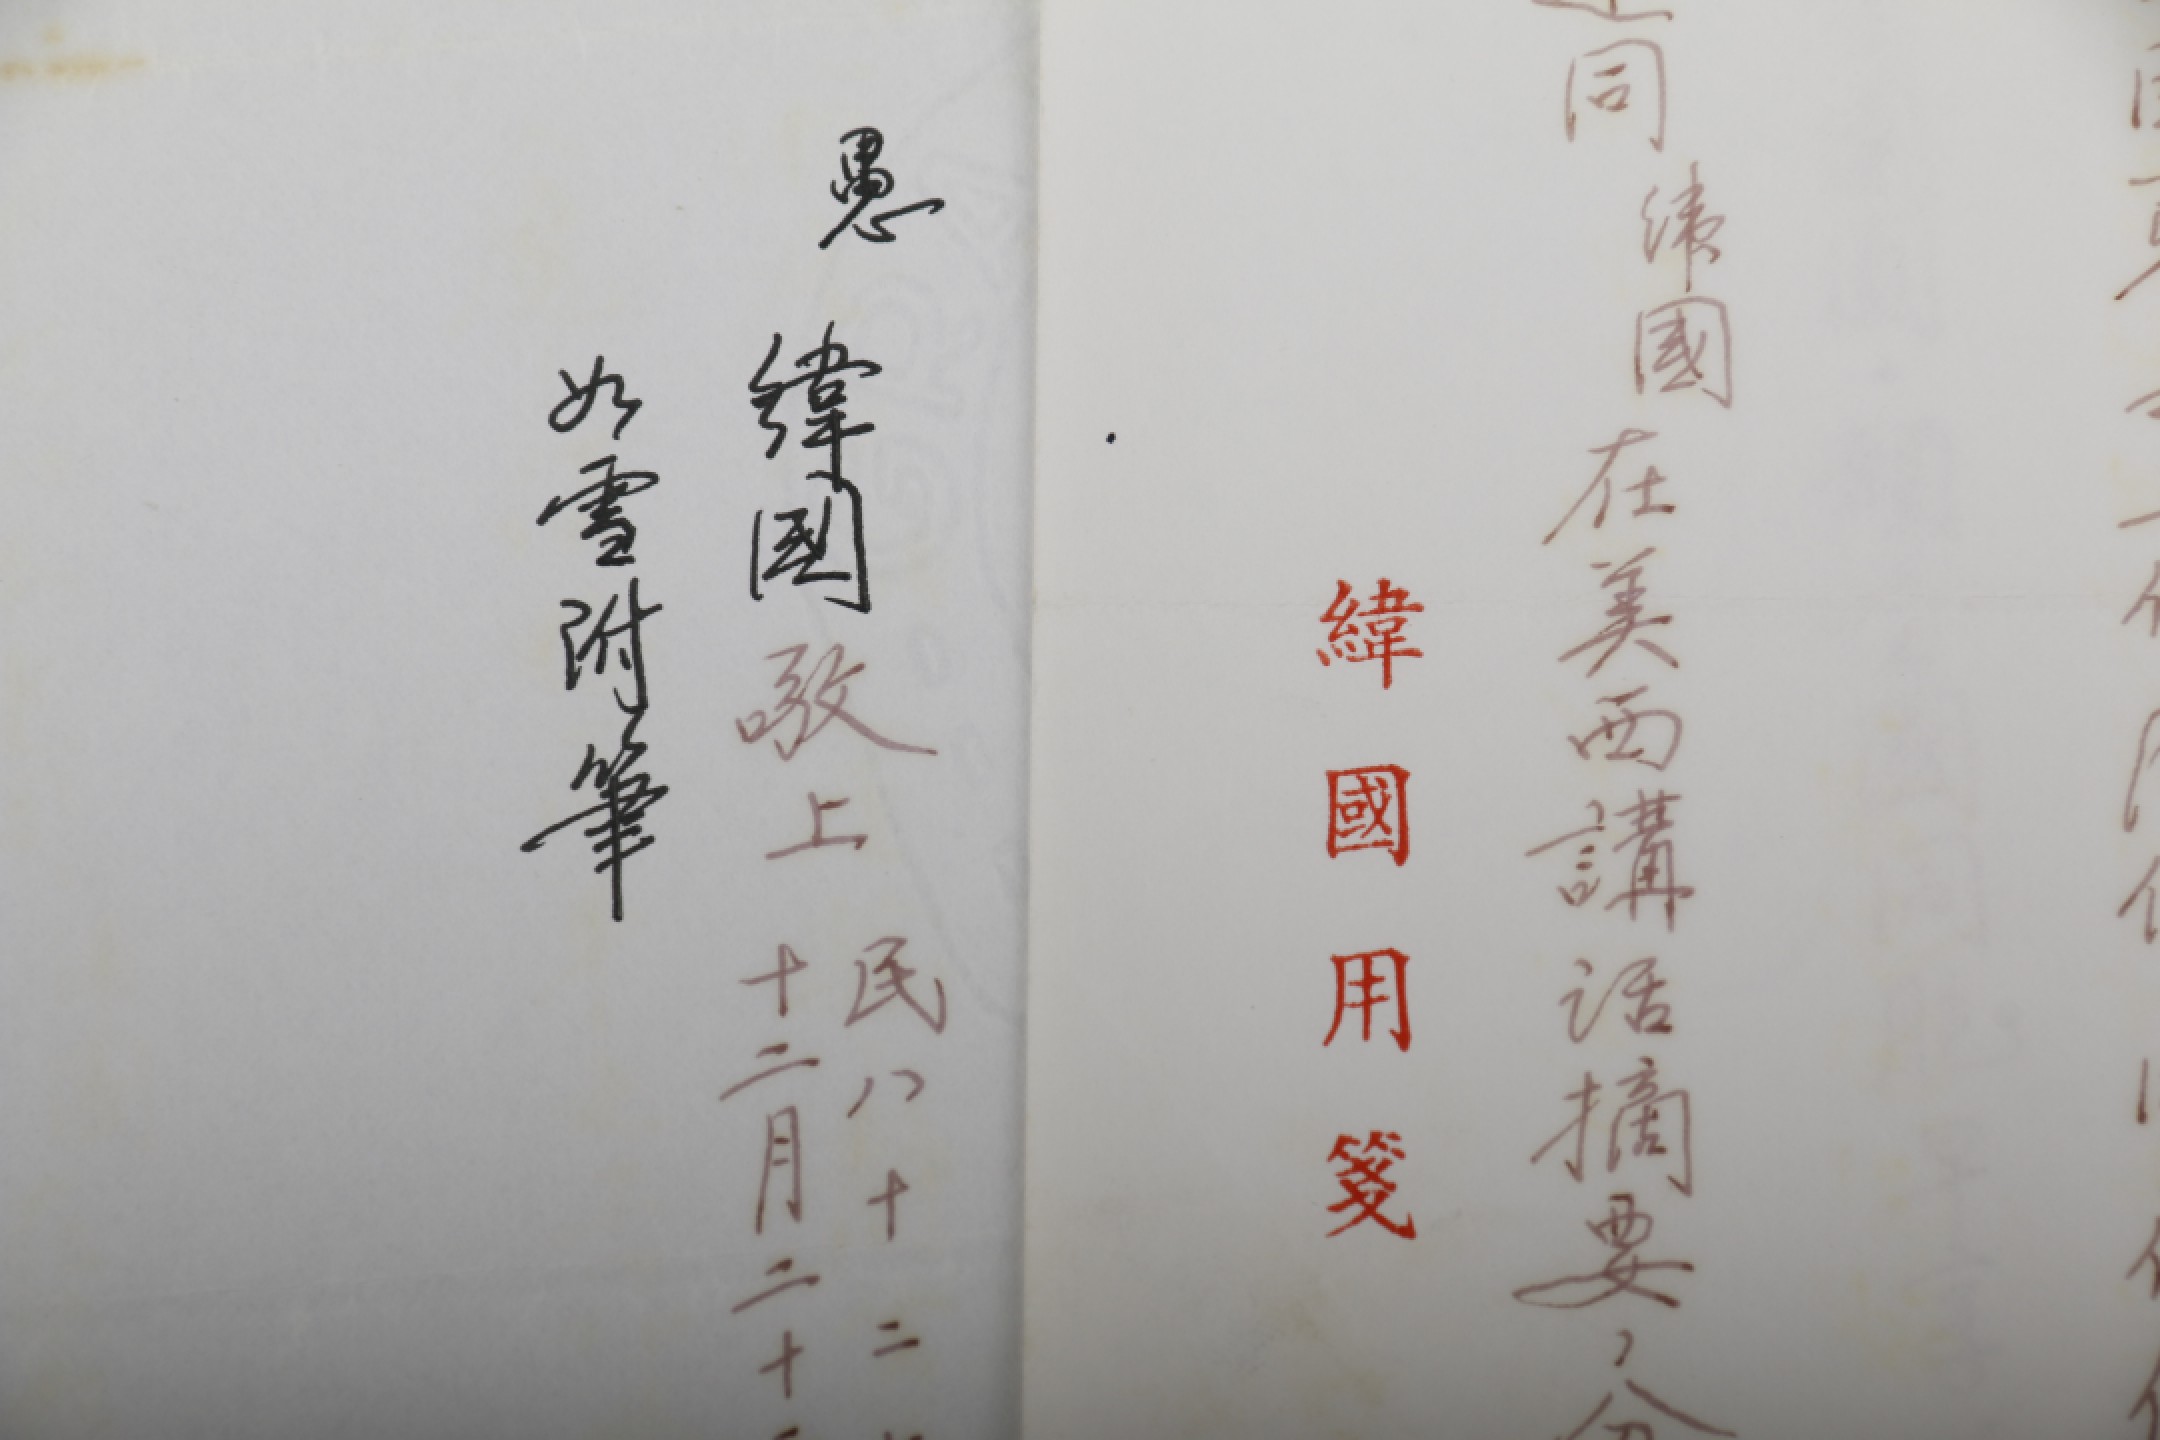 同緯國在美西講話摘要，分
緯國用箋
愚
緯國敬上
民八十二
十二月二十
如雪附筆